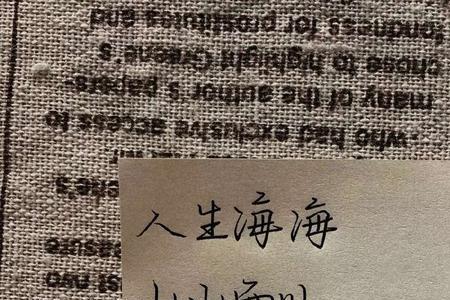 who had exclusive access to
many of the author's papers-
chose to highlight Greene's
fondness for prostitutes and
人生海海